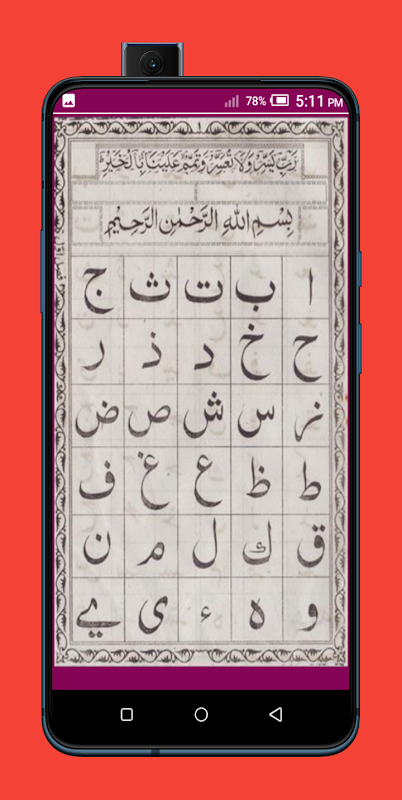 78% 5:11 PM
١
رَبِّ يَسِّرْ وَلَا تُعَسِّرْ وَتَمِّمْ عَلَيْنَا بِالْخَيْرِ
بِسْمِ اللهِ الرَّحْمٰنِ الرَّحِيْمِ
ا ب ت ث ج
ح خ د ذ ر
ز س ش ص ض
ط ظ ع غ ف
ق ك ل م ن
و ه ء ی ے